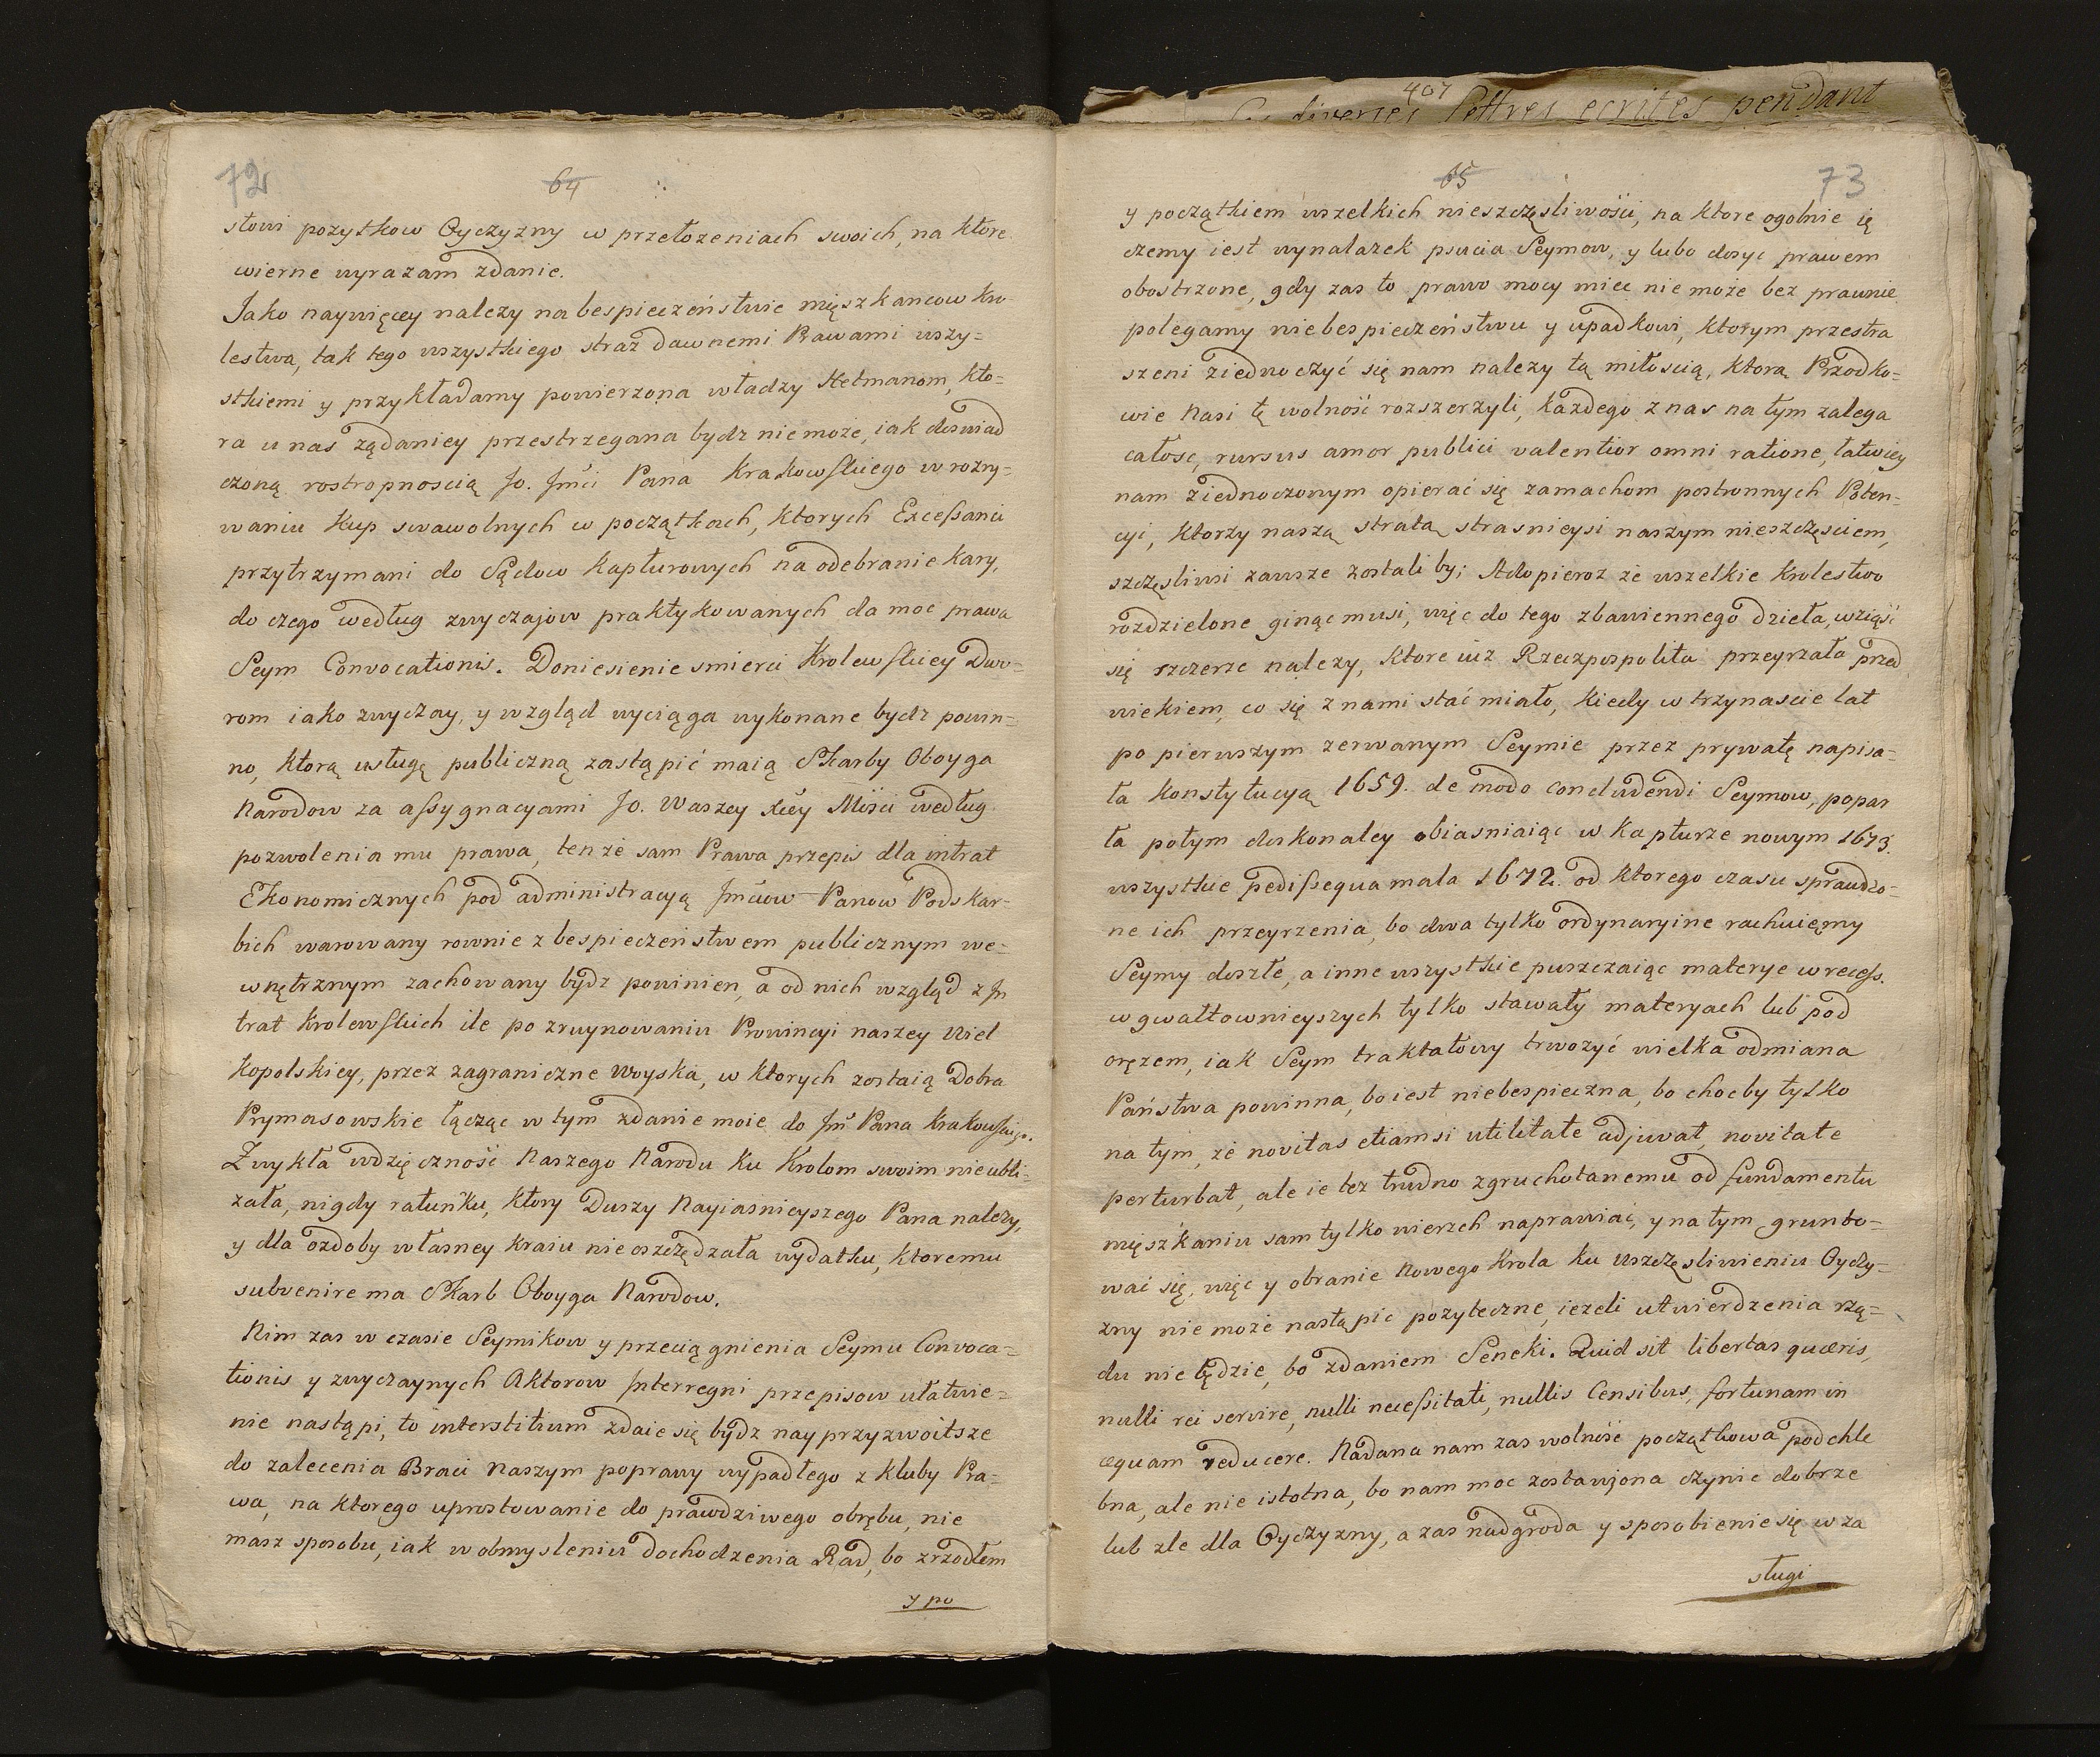 72
64
słowi pozytkow Oyczyzny w przełozeniach swoich, na które
wierne wyrazam zdanie.
Jako naywięcey nalezy na bespieczeństwie mięszkancow Kro-
lestwa, tak tego wszystkiego straz dawnemi Prawami wszy=
stkiemi y przykładamy powierzona władzy Hetmanom, kto=
ra u nas ządaniey przestrzegana bydz nie moze, iak doswiad
czoną rostropnoscią Jo. Jmći Pana Krakowskiego w rozry=
waniu Kup swawolnych w początkach, ktorych Excessanci
przytrzymani do Sądow Kapturowych na odebranie Kary,
do czego według zwyczajow praktykowanych da moc prawa
Seym Convocationis. Doniesienie smierci Krolewskiey Dwo-
rom iako zwyczay, y wzgląd wyciąga wykonane bydz powin=
no, ktorą usługę publiczną zastąpić maią Skarby Oboyga
Narodow za assygnacyami Jo. Waszey Xcey Mości według
pozwolenia mu prawa, tenże sam Prawa przepis dla intrat
Ekonomicznych pod administracyą Jmciow Panow Podskar-
bich warowany rownie z bespieczeństwem publicznym we-
wnętrznym zachowany bydz powinien, a od nich wzgląd z Jn
trat Krolewskich ile po zruynowaniu Prowincyi naszey Wiel
kopolskiey, przez zagraniczne Woyska, w ktorych zostaią Dobra
Prymasowskie łącząc w tym zdanie moie do Jm Pana Krakowskiego.
Zwykła wdzięczność Naszego Narodu ku Krolom swoim nie ubli=
zała, nigdy ratunku, ktory Duszy Nayiasnieyszego Pana nalezy,
y dla ozdoby własney kraiu nie oszczędzała wydatku, ktoremu
subvenire ma Skarb Oboyga Narodow.
Nim zas w czasie Seymikow y przeciągnienia Seymu Convoca=
tionis y zwyczaynych Aktorow Jnterregni przepisow ułatwie=
nie nastąpi, to interstitium zdaie się bydz nay przyzwoitsze
do zalecenia Braci Naszym poprawy wypadłego z kluby Pra-
wa, na ktorego uprostowanie do prawdziwego obrębu, nie
masz sposobu, iak w obmysleniu dochodzenia Rad, bo zrzodłem
y po
407
diverses Lettres ecrites pendant
65
73
y początkiem wszelkich nieszczęsliwości, na ktore ogolnie ię
czemy iest wynalazek psucia Seymow, y lubo dosyc prawem
obostrzone, gdy zas to prawo mocy miec nie moze bez prawnie
polegamy niebespieczeństwu y upadkowi, ktorym przestra
szeni ziednoczyć się nam nalezy tą miłoscią, ktorą Przodko=
wie Nasi tę wolność rozszerzyli, kazdego z nas na tym zalega
całosc, rursus amor publici valentior omni ratione, łatwiey
nam ziednoczonym opierać się zamachom postronnych Poten-
cyi, ktorzy naszą stratą strasnieysi naszym nieszczęsciem,
szczęsliwsi zawsze zostaliby; Adopieroz że wszelkie krolestwo
rozdzielone ginąc musi, więc do tego zbawiennego dzieła, wziąść
się szczerze nalezy, ktore iuz Rzeczpospolita przeyrzała przed
wiekiem, co się z nami stać miało, kiedy w trzynascie lat
po pierwszym zerwanym Seymie przez prywatę napisa-
ła Konstytucyą 1659. de modo concludendi Seymow, popar
ła potym doskonaley obiasniaiąc w Kapturze nowym 1673.
wszystkie pedissequa mala 1672. od ktorego czasu sprawdzo-
ne ich przeyrzenia, bo dwa tylko ordynaryine rachuiemy
Seymy doszłe, a inne wszystkie puszczaiąc materye w recess.
w gwałtownieyszych tylko stawały materyach lub pod
oręzem, iak Seym traktatowy trwozyć wielka odmiana
Państwa powinna, bo iest niebespieczna, bo choćby tylko
na tym, że novitas etiamsi utilitate adjuvat, novitate
perturbat, ale ie tez trudno zgruchotanemu od fundamentu
mięszkaniu sam tylko wierzch naprawiać, y na tym grunto-
wać się, więc y obranie Nowego Krola ku uszczęsliwieniu Oyczy-
zny nie moze nastąpic pozyteczne, iezeli utwierdzenia rzą=
du nie będzie, bo zdaniem Seneki. Quid sit libertas quæris,
nulli rei servire, nulli necessitati, nullis Censibus, fortunam in
æquam reducere. Nadana nam zas wolność początkowa podchle
bna, ale nie istotna, bo nam moc zostawjona czynic dobrze
lub zle dla Oyczyzny, a zas nadgroda y sposobienie się w za
sługi